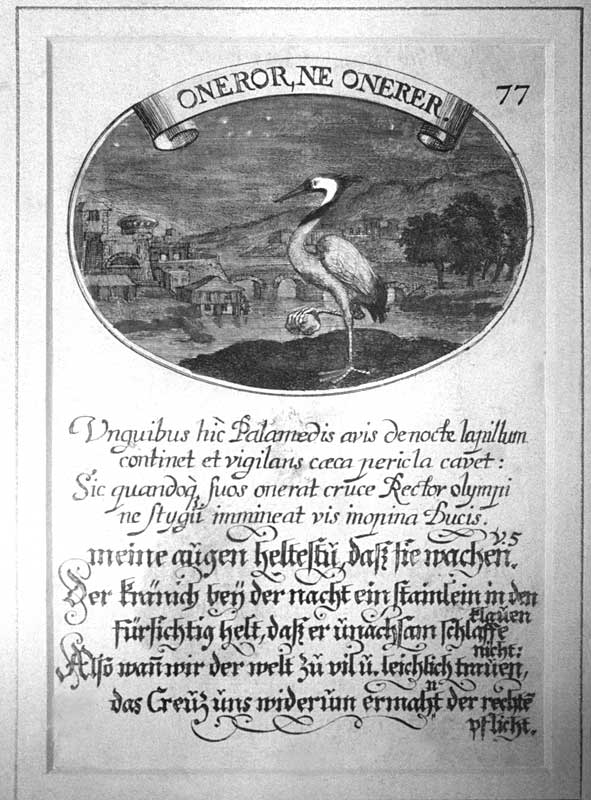 ONEROR, NE ONERER.
77
Vnguibus hîc Palamedis avis de nocte lapillum
continet et vigilans cæca pericla cavet:
Sic quandoq; suos onerat cruce Rector olympi
ne stygii immineat vis inopina Ducis.
v. 5
meine augen heltestu, daß sie wachen.
Der Kränich beÿ der nacht ein stainlein in den
klauen
fürsichtig helt, daß er unachsam schlaffe
nicht:
Alsô wañ wir der welt zu vil u. leichlich trauen,
das Creuz uns widerum ermahnt der rechtẽ
pflicht.